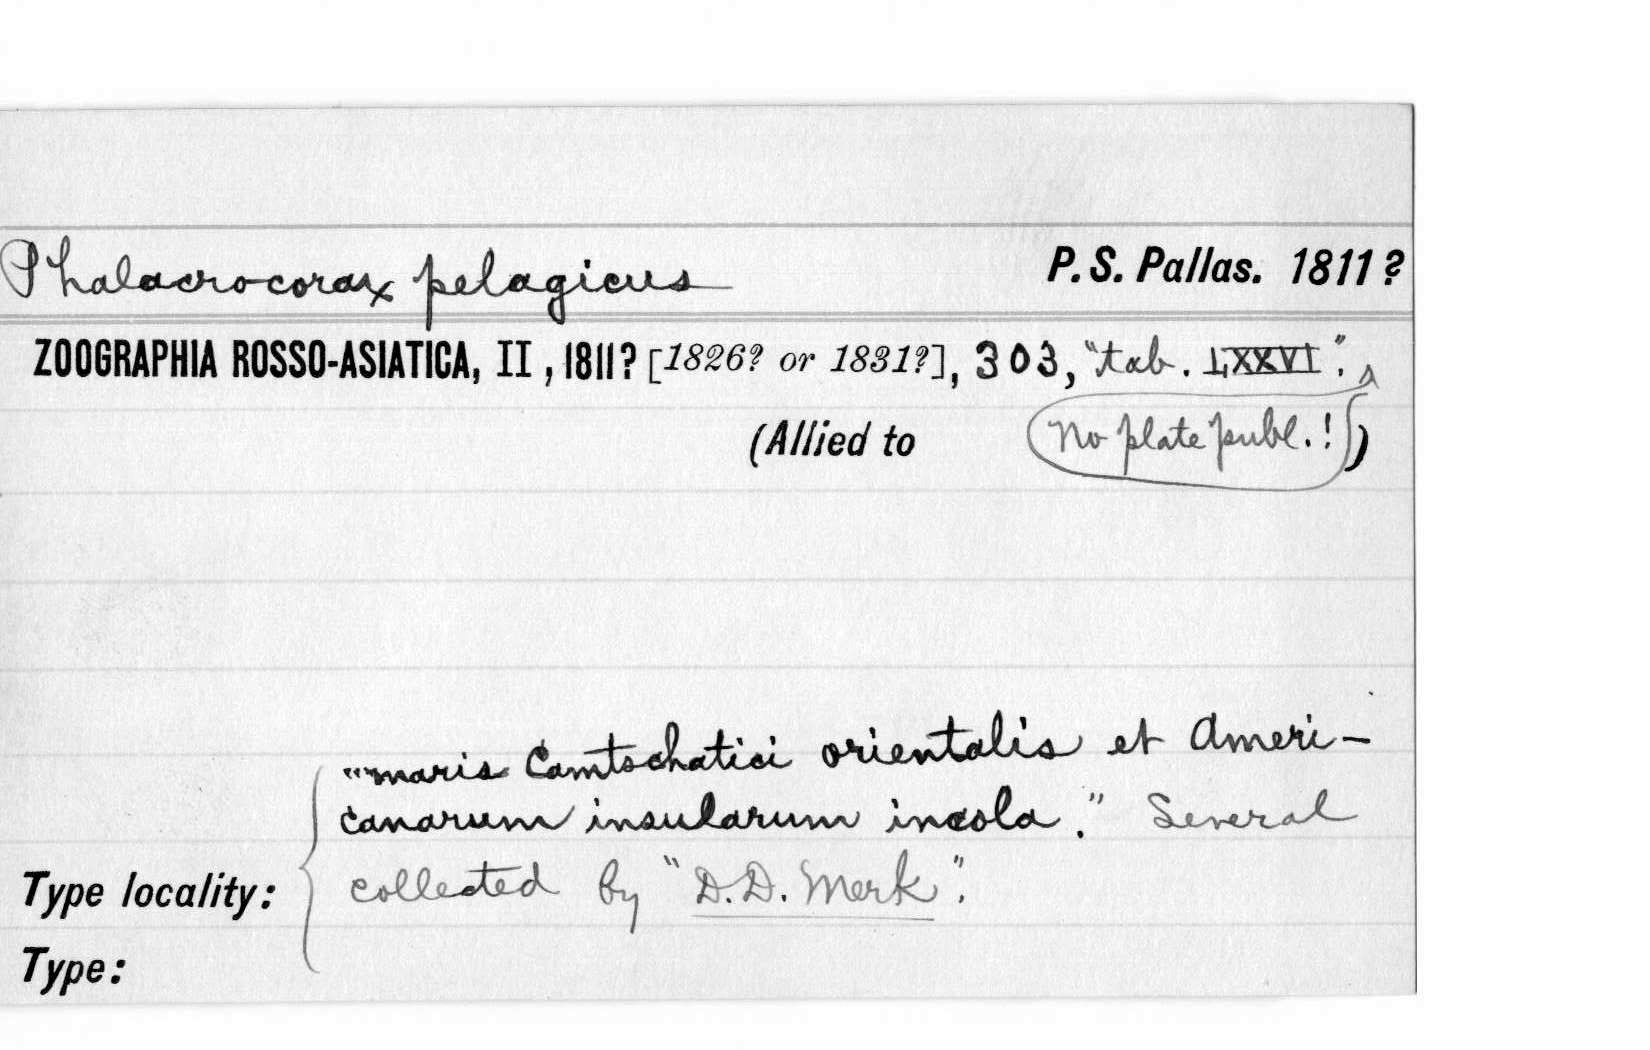 Phalacrocorax pelagicus P. S. Pallas. 1811?
ZOOGRAPHIA ROSSO-ASIATICA, II, 1811? [1826? or 1831?], 303, "tab. LXXVI".
(Allied to No plate publ.! )
"maris Camtschatici orientalis et Ameri-
canarum insularum incola." Several
Type locality: collected by "D.D. Merk".
Type: